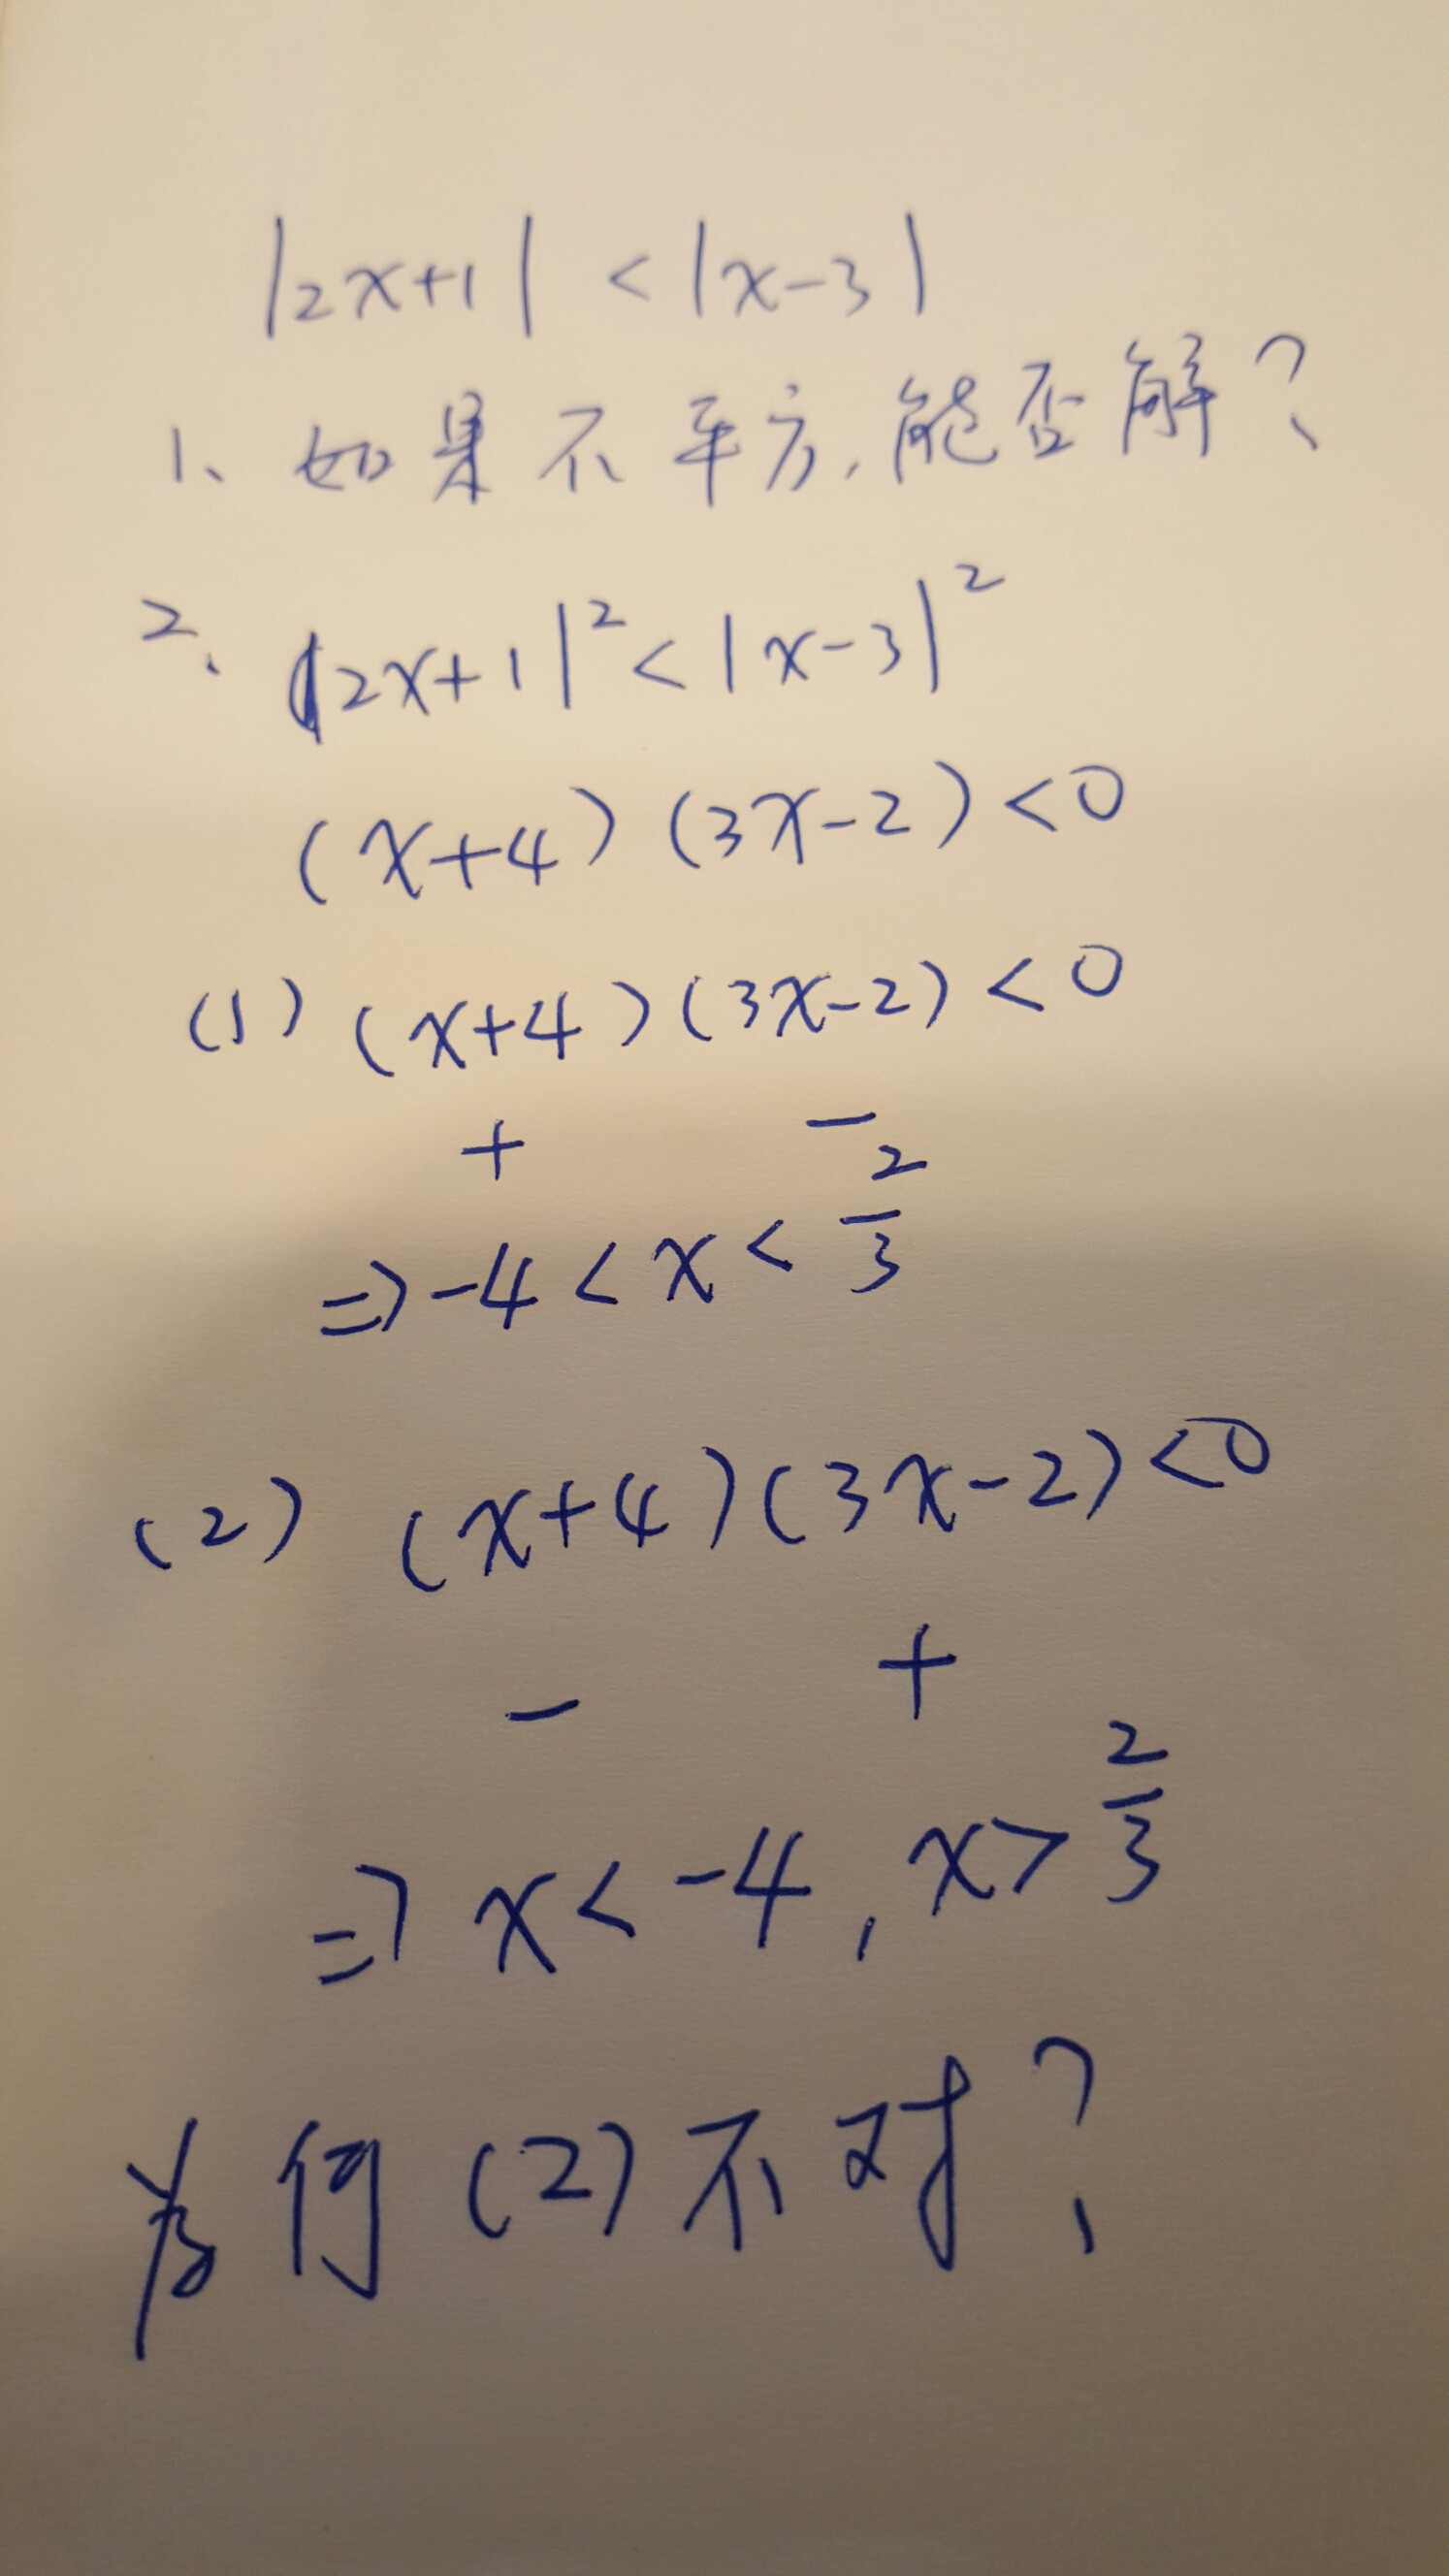 |2x+1| < |x-3|
1、如果不平方,能否解?
2、|2x+1|² < |x-3|²
(x+4)(3x-2)<0
(1) (x+4)(3x-2)<0
+ -
⇒ -4 < x < 2/3
(2) (x+4)(3x-2)<0
- +
⇒ x < -4, x > 2/3
为何(2)不对?